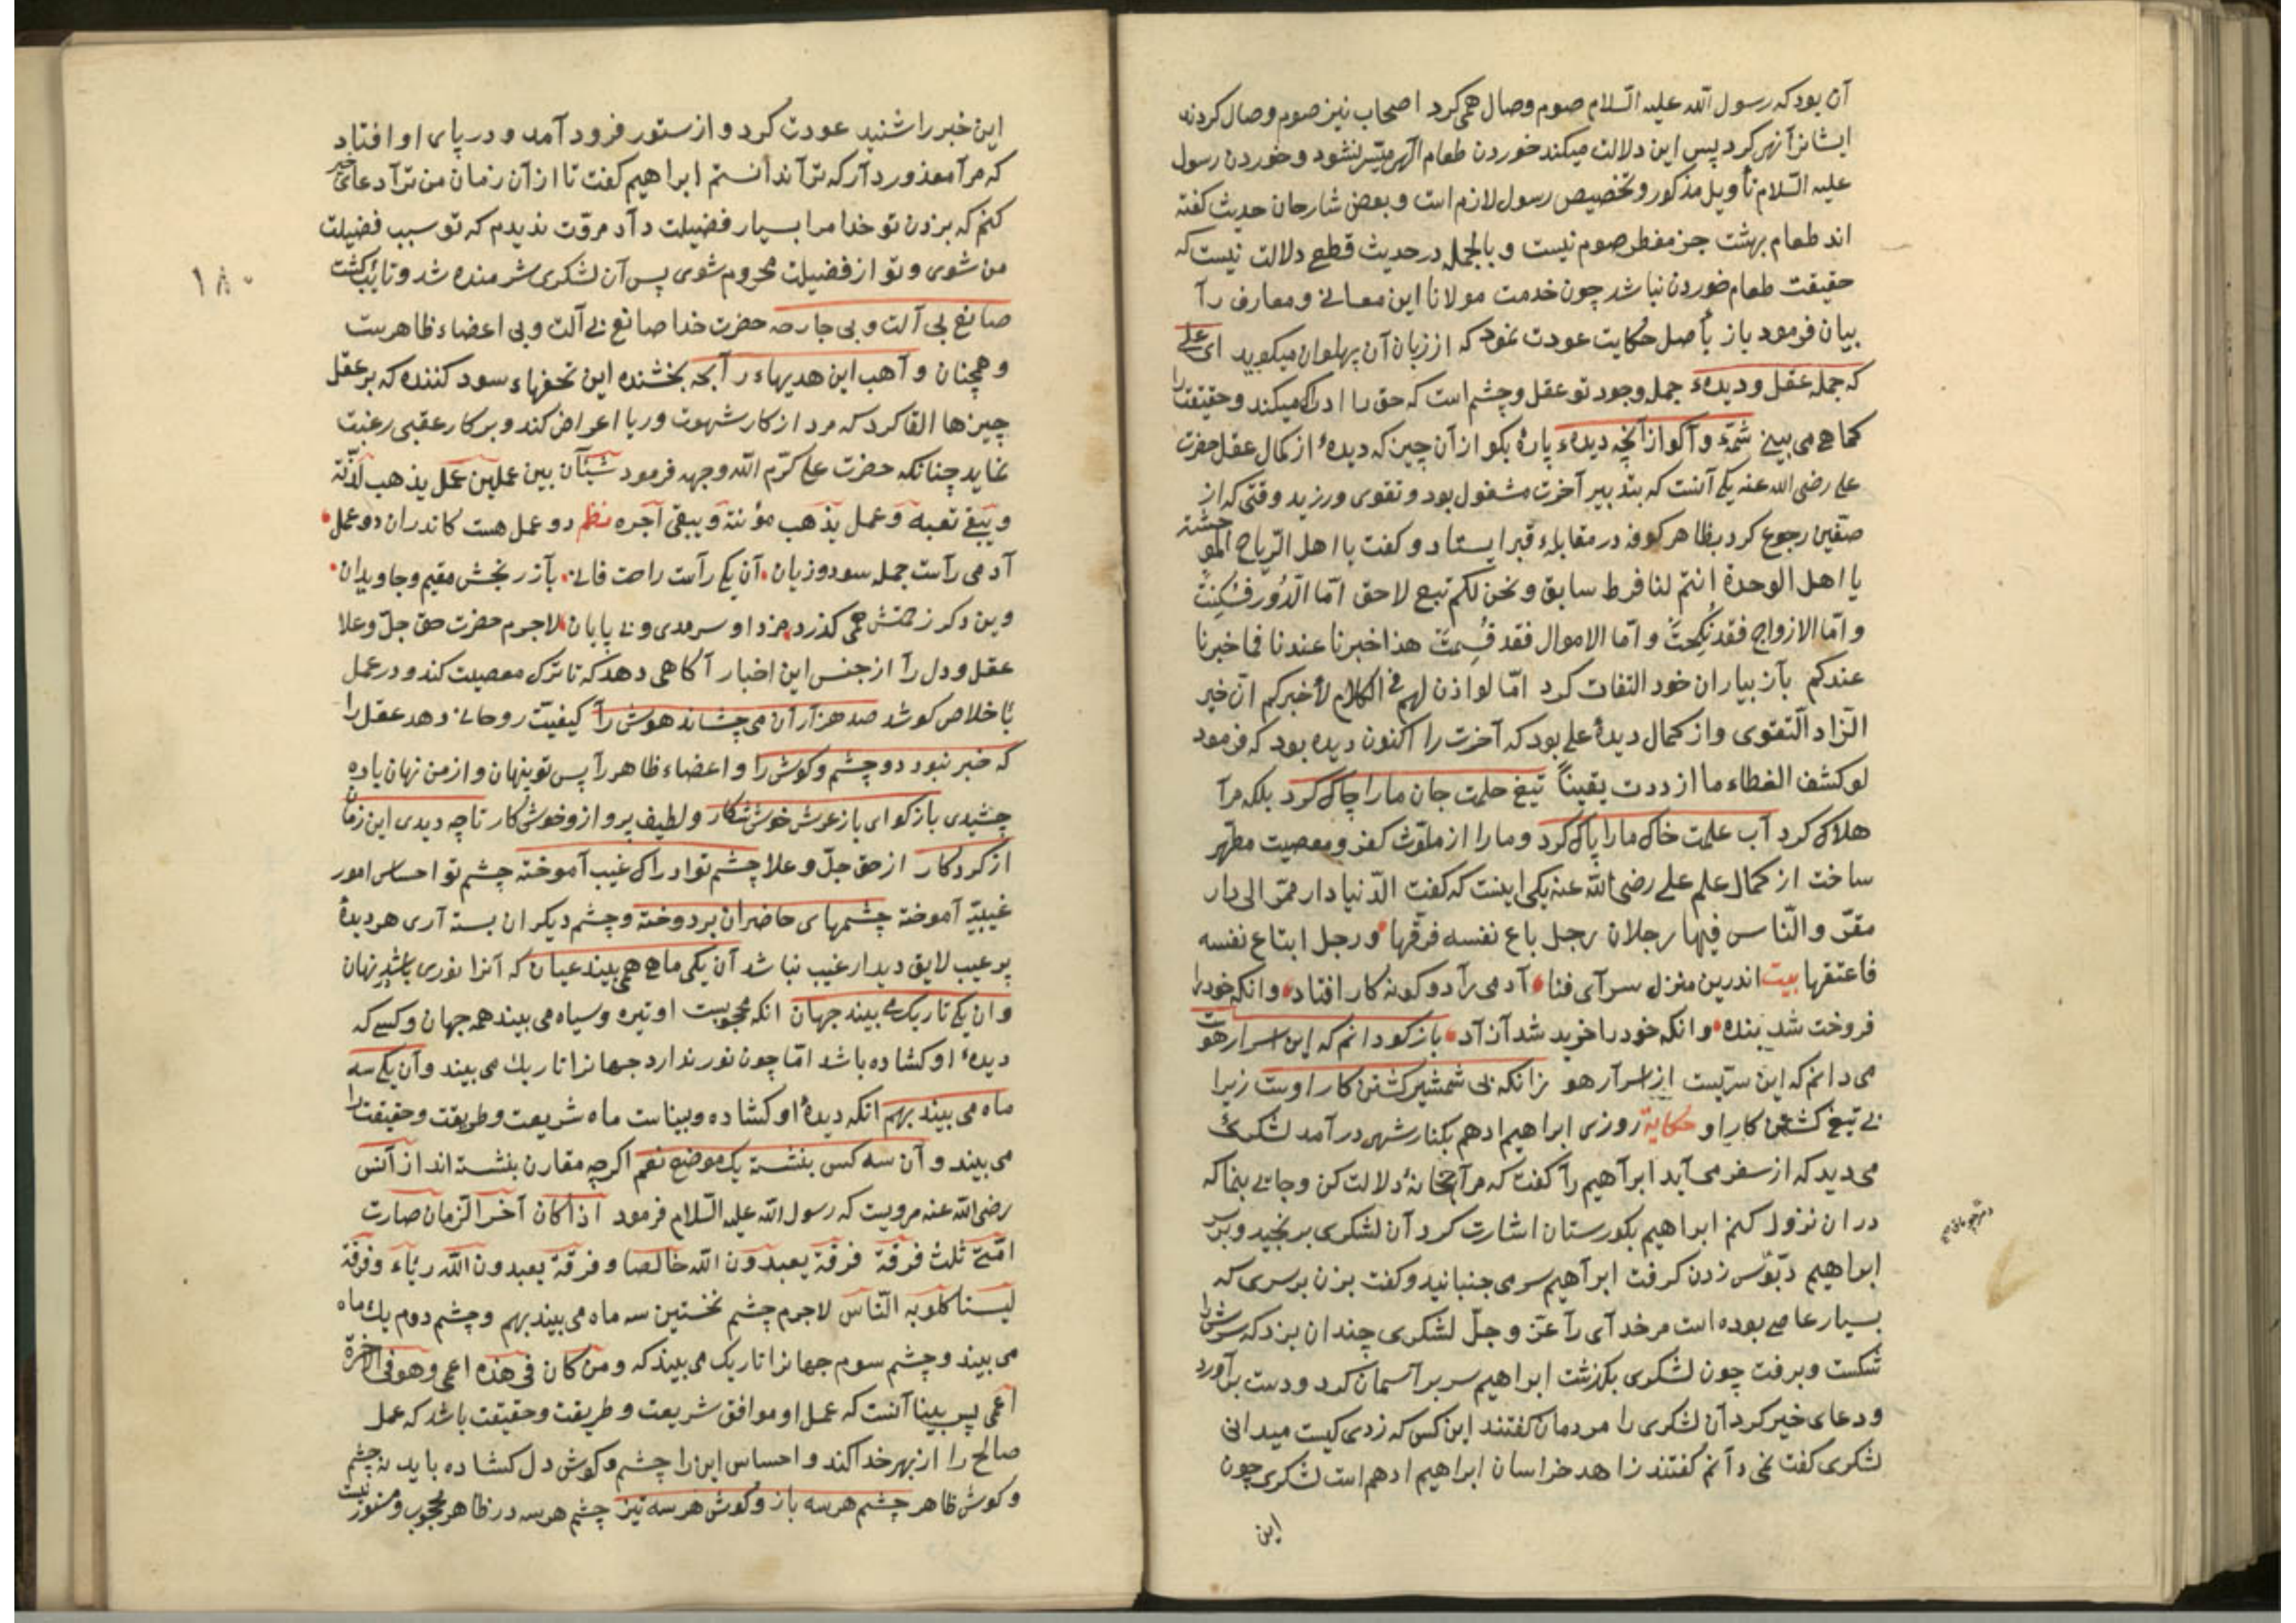 آن بود که رسول الله علیه السلام صوم وصال همی کرد اصحاب نیز صوم وصال کردند
ایشانرا نهی کرد پس این دلالت میکند خوردن طعام الهی میسر نشود و خوردن رسول
علیه السلام تأویل مذکور و تخصیص رسول لازم است و بعض شارحان حدیث گفته
اند طعام بهشت جز مفطر صوم نیست و بالجمله در حدیث قطع دلالت نیست که
حقیقت طعام خوردن نباشد چون خدمت مولانا این معانی و معارف را
بیان فرمود باز باصل حکایت عودت نمود که از زبان آن پهلوان میکوید ای علی
که جمله عقل و دیدهٔ جمله وجود تو عقل و چشم است که حق را ادراک میکند و حقیقت را
کما هی می بینی شمّهٔ واکو از آنچه دیدهٔ پارهٔ بکو از آن چیز که دیدهٔ از کمال عقل حضرت
علی رضی الله عنه یکی آنست که بتدبیر آخرت مشغول بود و تقوی ورزید وقتی که از
صفین رجوع کرد بظاهر کوفه در مقابلهٔ قبر ایستاد و کفت یا اهل الریاح الموحشة
یا اهل الوحدة انتم لنا فرط سابق و نحن لکم تبع لاحق امّا الدّور فسُکنت
و امّا الازواج فقد نُکحت و امّا الاموال فقد قُسمت هذا خبرنا عندنا فما خبرنا
عندکم باز بیاران خود التفات کرد امّا لو اذن لهم فی الکلام لأخبرکم انّ خیر
الزاد التقوی و از کمال دیدهٔ علی بود که آخرت را اکنون دیده بود که فرمود
لو کشف الغطاء ما ازددت یقیناً تیغ حلمت جان ما را چاک کرد بلکه مرا
هلاک کرد آب علمت خاک ما را پاک کرد و ما را از ملوّث کفر و معصیت مطهّر
ساخت از کمال علم علی رضی الله عنه یکی اینست که کفت الدّنیا دار ممرّ الی دار
مقرّ والنّاس فیها رجلان رجل باع نفسه فرقها و رجل ابتاع نفسه
فاعتقها بیت اندرین منزل سرای فنا آدمی را دو کونه کار افتاد وانکه خود را
فروخت شد بنده وانکه خود را خرید شد آزاد باز کو دانم که این اسرار هوست
می دانم که این سرّیست از اسرار هو زانکه بی شمشیر کشتن کار اوست زیرا
بی تیغ کشتن کار او حکایة روزی ابراهیم ادهم بکنار شهری در آمد لشکری
می دید که از سفر می آید ابراهیم را کفت که مرا بخانهٔ دلالت کن و جایی بنما که
در ان نزول کنم ابراهیم بکورستان اشارت کرد آن لشکری برنجید و بر سر
ابراهیم دبّوس زدن کرفت ابراهیم سر می جنبانید و کفت بزن بر سری که
بسیار عاصی بوده است مر خدای را عزّ و جلّ لشکری چندان بزد که سرش را
شکست و برفت چون لشکری بکذشت ابراهیم سر بر آسمان کرد و دست بر آورد
و دعای خیر کرد آن لشکری را مردمان کفتند این کس که زدی کیست میدانی
لشکری کفت نمی دانم کفتند زاهد خراسان ابراهیم ادهم است لشکری چون
این
این خبر را شنید عودت کرد و از ستور فرود آمد و در پای او افتاد
که مرا معذور دار که ترا ندانستم ابراهیم کفت تا از آن زمان من ترا دعای خیر
کنم که بزدن تو خدا مرا بسیار فضیلت داد مروّت ندیدم که تو سبب فضیلت
من شوی و تو از فضیلت محروم شوی پس آن لشکری شرمنده شد و تائب کشت
صانع بی آلت و بی جارحه حضرت خدا صانع بی آلت و بی اعضاء ظاهرست
و همچنان واهب این هدیهاء رابحه بخشنده این تحفهاء سود کننده که بر عقل
چیزها القا کرد که مرد از کار شهوت و ریا اعراض کند و بر کار عقبی رغبت
نماید چنانکه حضرت علی کرّم الله وجهه فرمود شتّان بین عملین عمل یذهب لذّته
و یبقی تعبه و عمل یذهب مؤنته و یبقی آجره نظم دو عمل هست کاندران دو عمل
آدمی راست جمله سود و زیان آن یکی راست راحت فانی باز رنجش مقیم و جاویدان
وین دکر زحمتش همی کذرد مزد او سرمدی و بی پایان لاجرم حضرت حق جلّ و علا
عقل و دل را از جنس این اخبار آکاهی دهد که تا ترک معصیت کند و در عمل
باخلاص کوشد صد هزاران می چشاند هوش را کیفیّت روحانی دهد عقل را
که خبر نبود دو چشم و کوش را و اعضاء ظاهر را پس تو پنهان و از من نهان باده
چشیدی باز کو ای باز عرش خوش شکار و لطیف پرواز و خوش کار تا چه دیدی این زمان
از کردکار از حق جلّ و علا چشم تو ادراک غیب آموخته چشم تو احساس امور
غیبیّه آموخته چشمهای حاضران بر دوخته و چشم دیکران بسته آری هر دیدهٔ
پر عیب لایق دیدار غیب نباشد آن یکی ماهی همی بیند عیان که آنرا نوری باشد نهان
وان یکی تاریک می بیند جهان انکه محجوبست او تیره و سیاه می بیند همه جهان و کسی که
دیدهٔ او کشاده باشد امّا چون نور ندارد جهانرا تاریک می بیند وآن یکی سه
ماه می بیند بهم انکه دیدهٔ او کشاده و بیناست ماه شریعت و طریقت و حقیقت را
می بیند و آن سه کس بنشسته یک موضع نعم اکرچه مقارن بنشسته اند از آنس
رضی الله عنه مرویست که رسول الله علیه السلام فرمود اذا کان آخر الزمان صارت
امّتی ثلث فرقة فرقة یعبدون الله خالصا و فرقة یعبدون الله ریاء و فرقة
لیستاکلو به النّاس لاجرم چشم نخستین سه ماه می بیند بهم و چشم دوم یک ماه
می بیند و چشم سوم جهانرا تاریک می بیند که و من کان فی هذه اعمی و هو فی الاخرة
اعمی پس بینا آنست که عمل او موافق شریعت و طریقت و حقیقت باشد که عمل
صالح را از بهر خدا کند و احساس این را چشم و کوش دل کشاده باید نه چشم
و کوش ظاهر چشم هر سه باز و کوش هر سه تیز چشم هر سه در ظاهر محجوب و مستور نیست
١٨٠